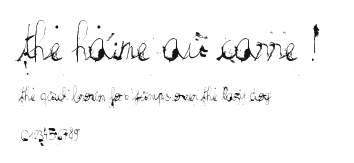 the haine au carré !
the quick brown fox jumps over the lazy dog
0123456789